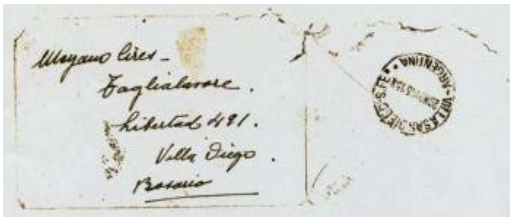 Moyano Cires -
Taglialavore.
Libertad 491.
Villa Diego.
Rosario
ARGENTINA